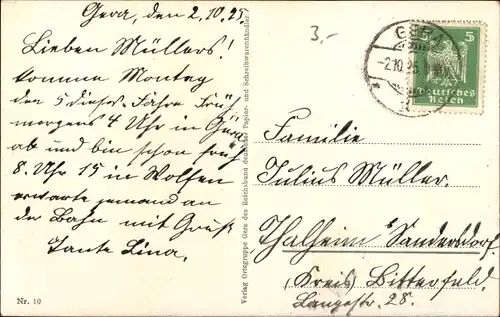 Gera, den 2.10.25.
Lieben Müllers!
komme Montag
den 5 dieses. Fahre früh
morgens 4 Uhr in Gera
ab und bin schon früh
8. Uhr 15 in Wolfen
erwarte jemand an
der Bahn mit Gruß
Tante Lina.
Nr. 10
Verlag Ortsgruppe Gera des Reichsbund deutscher Papier- und Schreibwarenhändler.
3,-
GERA
-2.10.25
5
Deutsches
Reich
Familie
Julius Müller.
Thalheim b/Sandersdorf.
Kreis Bitterfeld.
Langestr. 28.